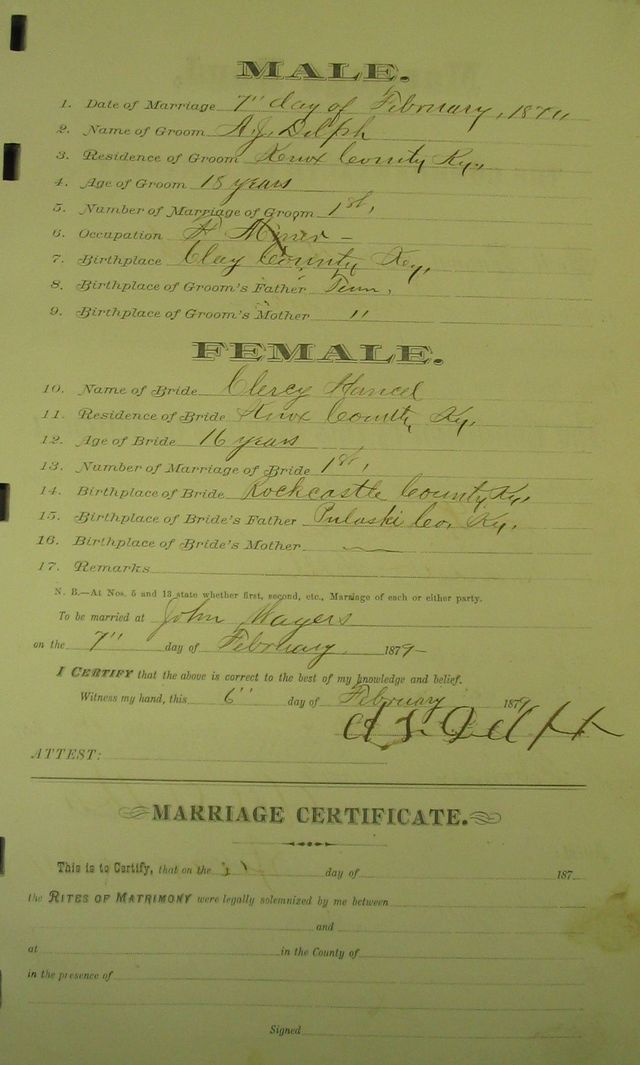 MALE.
1. Date of Marriage 7" day of February, 187
2. Name of Groom A. J. Delph
3. Residence of Groom Knox County Ky,
4. Age of Groom 18 years
5. Number of Marriage of Groom 1st,
6. Occupation
7. Birthplace Clay County Ky,
8. Birthplace of Groom's Father Tenn,
9. Birthplace of Groom's Mother "
FEMALE.
10. Name of Bride Clercy Hancel
11. Residence of Bride Knox County Ky,
12. Age of Bride 16 years
13. Number of Marriage of Bride 1st,
14. Birthplace of Bride Rockcastle County Ky,
15. Birthplace of Bride's Father Pulaski Co, Ky,
16. Birthplace of Bride's Mother
17. Remarks
N. B.—At Nos. 5 and 13 state whether first, second, etc., Marriage of each or either party.
To be married at John Mayers
on the 7" day of February, 1879
I CERTIFY that the above is correct to the best of my knowledge and belief.
Witness my hand, this 6" day of February 1879
A J Delph
ATTEST:
MARRIAGE CERTIFICATE.
This is to Certify, that on the day of 187
the RITES OF MATRIMONY were legally solemnized by me between
and
at in the County of
in the presence of
Signed